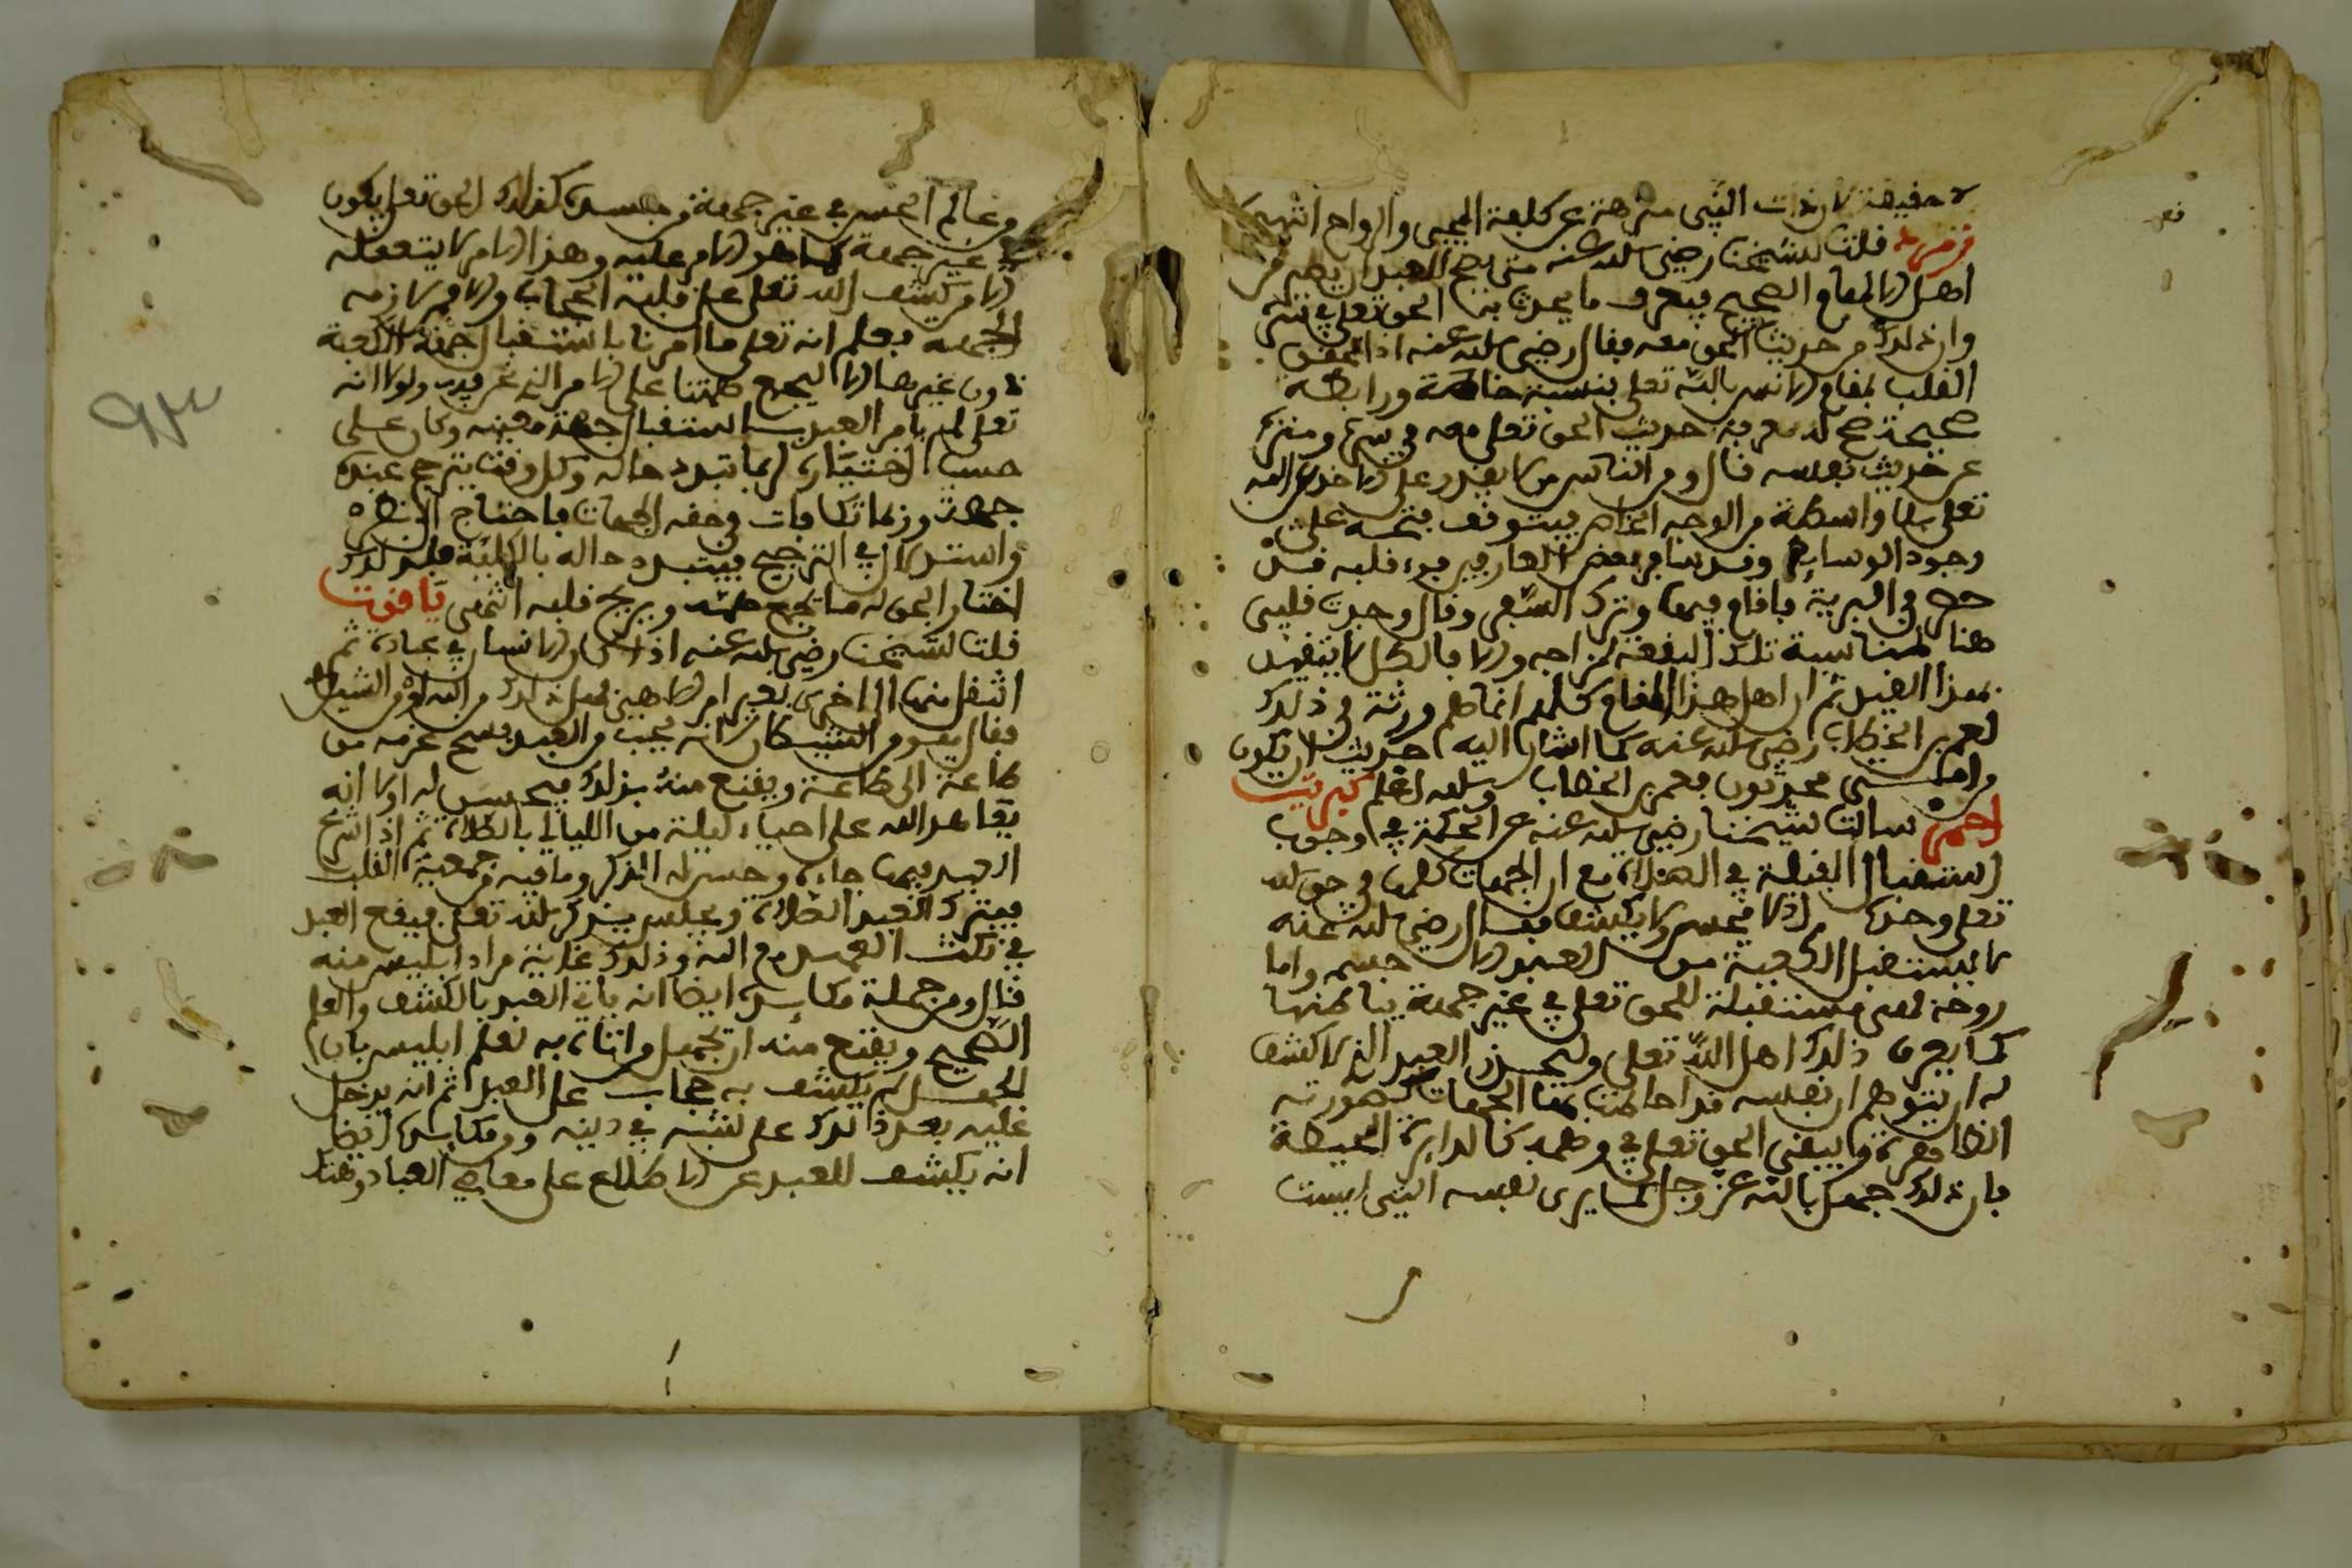 لا حقيقة لان ذات النبي منزهة عن كلفة المجيء والرواح انتهى
زمرد قلت لشيخنا رضي الله عنه متى يصح للعبد ان يصير من
اهل المقام الصحيح فيعرف ما يحدث به الحق تعلى في سره
وان ذلك من حديث الحق معه فقال رضي الله عنه اذا تحقق
القلب بمقام الانس بالله تعلى بنسبة خاصة ورابطة
صحيحة صح له معرفة حديث الحق تعلى معه في سره وميزه
عن حديث نفسه قال ومن الناس من لا يقدر على الاخذ عن الله
تعلى بلا واسطة من الوجه الخاص فيتوقف فتحه على
وجود الوسايط وقد سافر بعض العارفين فوجد قلبه قد
حضر في البرية فاقام فيها وترك السفر وقال وجدت قلبي
هنا لمناسبة تلك البقعة لمزاجه والا فالكل لا يتقيد
بهذا القيد ثم ان اهل هذا المقام كلهم انما هم ورثة في ذلك
لعمر بن الخطاب رضي الله عنه كما اشار اليه حديث ان يكون
من امتى محدثون فعمر بن الخطاب والله اعلم كبريت
احمر سالت شيخنا رضي الله عنه عن الحكمة في وجوب
استقبال القبلة في الصلاة مع ان الجهات كلها في حق الله
تعلى واحدة فقال رضي الله عنه
لا يستقبل الكعبة من العبد الا جسمه واما
روحه فهى مستقبلة للحق تعلى في غير جهة بباطنها
كما يعرف ذلك اهل الله تعلى وليحذر العبد الذي لا كشف
له ان يتوهم ان نفسه قد احاطت بها الجهات كصورته
الظاهرة وا يبقى الحق تعلى في وهمه كالدايرة المحيطة
فان ذلك جهل بالله عز وجل كما يرى نفسه التى ليست
تعر
وعالم الحس في غير جهة من جسده كذلك الحق تعلى يكون
في غير جهة كما هو الامر عليه وهذا الامر لا يتعقله
الا من كشف الله تعلى عن قلبه الحجاب والا فمن لازمه
الجهة فعلم انه تعلى ما امرنا باستقبال جهة الكعبة
دون غيرها الا ليجمع همتنا على الامر الذي نحن فيه ولولا انه
تعلى لم يامر العبد باستقبال جهة معينة وكان على
حسب اختياره لربما تبدد حاله وكل وقت يترجح عنده
جهة وربما تكافات في حقه الجهات فاحتاج الى نظره
واستدلال في الترجيح فيتبدد حاله بالكلية فلذلك
اختار الحق له ما يجمع همته ويريح قلبه انتهى ياقوت
قلت لشيخنا رضي الله عنه اذا كان الانسان في عبادة ثم
انتقل منها الى اخرى بغير امر الاهي فهل ذلك من الله او من الشيطان
فقال هو من الشيطان لانه يحب من العبد فسخ عزمه من
طاعة الى طاعة ويقنع منه بذلك فيحسن له اولا انه
يعاهد الله على احياء ليلة من الليالي بالصلاة ثم اذا شرع
العبد فيها جاءه وحسن له الذكر وما فيه من جمعية القلب
فيترك العبد الصلاة ويجلس يذكر الله تعلى فيقع العبد
في نكث العهد مع الله وذلك غاية مراد ابليس منه
قال ومن جملة مكايده ايضا انه ياتى العبد بالكشف والعلم
الصحيح ويقنع منه ان تجهل من اتاه به لعلم ابليس بان
الجهل لم يكشف به حجاب على العبد ثم انه يدخل
عليه بعد ذلك على شبه في دينه ومن مكايده ايضا
انه يكشف للعبد عن الاطلاع على معاصي العباد وهتك